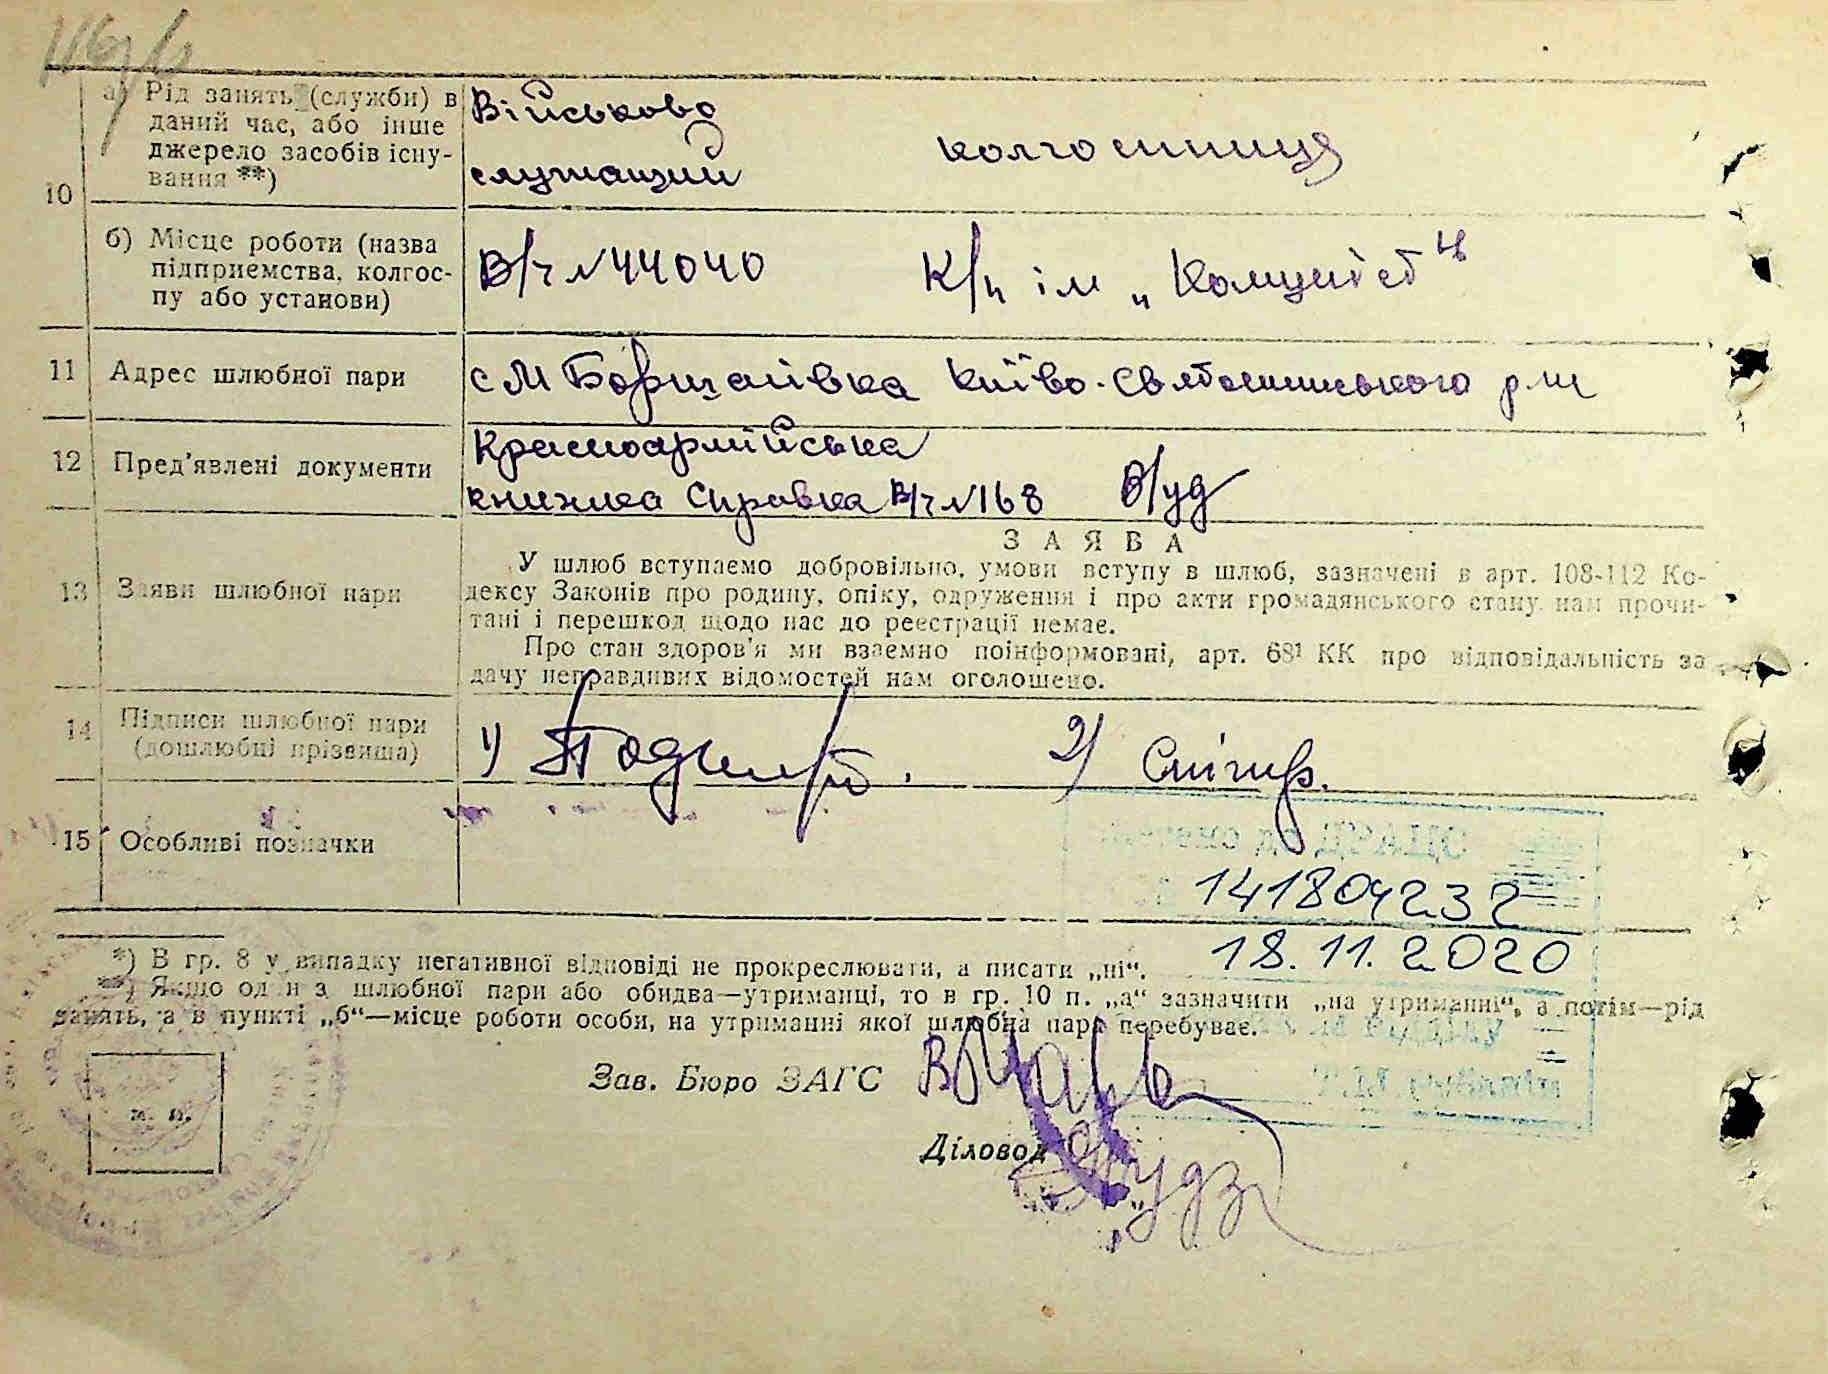 а) Рід занять (служби) в
даний час, або інше
джерело засобів існу-
вання **)
10
Військово
служащий
колгоспниця
б) Місце роботи (назва
підприємства, колгос-
пу або установи)
В/ч №44040
К/г ім „
11
Адрес шлюбної пари
с М Борщагівка Київо-Святошинського р-ну
12
Пред'явлені документи
Красноармійська
книжка Справка В/ч №168 В/уд
13
Заяви шлюбної пари
ЗАЯВА
У шлюб вступаємо добровільно, умови вступу в шлюб, зазначені в арт. 108-112 Ко-
дексу Законів про родину, опіку, одруження і про акти громадянського стану нам прочи-
тані і перешкод щодо нас до реєстрації немає.
Про стан здоров'я ми взаємно поінформовані, арт. 68¹ КК про відповідальність за
дачу неправдивих відомостей нам оголошено.
14
Підписи шлюбної пари
(дошлюбні прізвища)
1)
2) Снігир.
15
Особливі позначки
141804232
18.11.2020
*) В гр. 8 у випадку негативної відповіді не прокреслювати, а писати „ні“.
**) Якщо один з шлюбної пари або обидва—утриманці, то в гр. 10 п. „а“ зазначити „на утриманні“, а потім—рід
занять, а в пункті „б“—місце роботи особи, на утриманні якої шлюбна пара перебуває.
Зав. Бюро ЗАГС
Діловод
м. п.